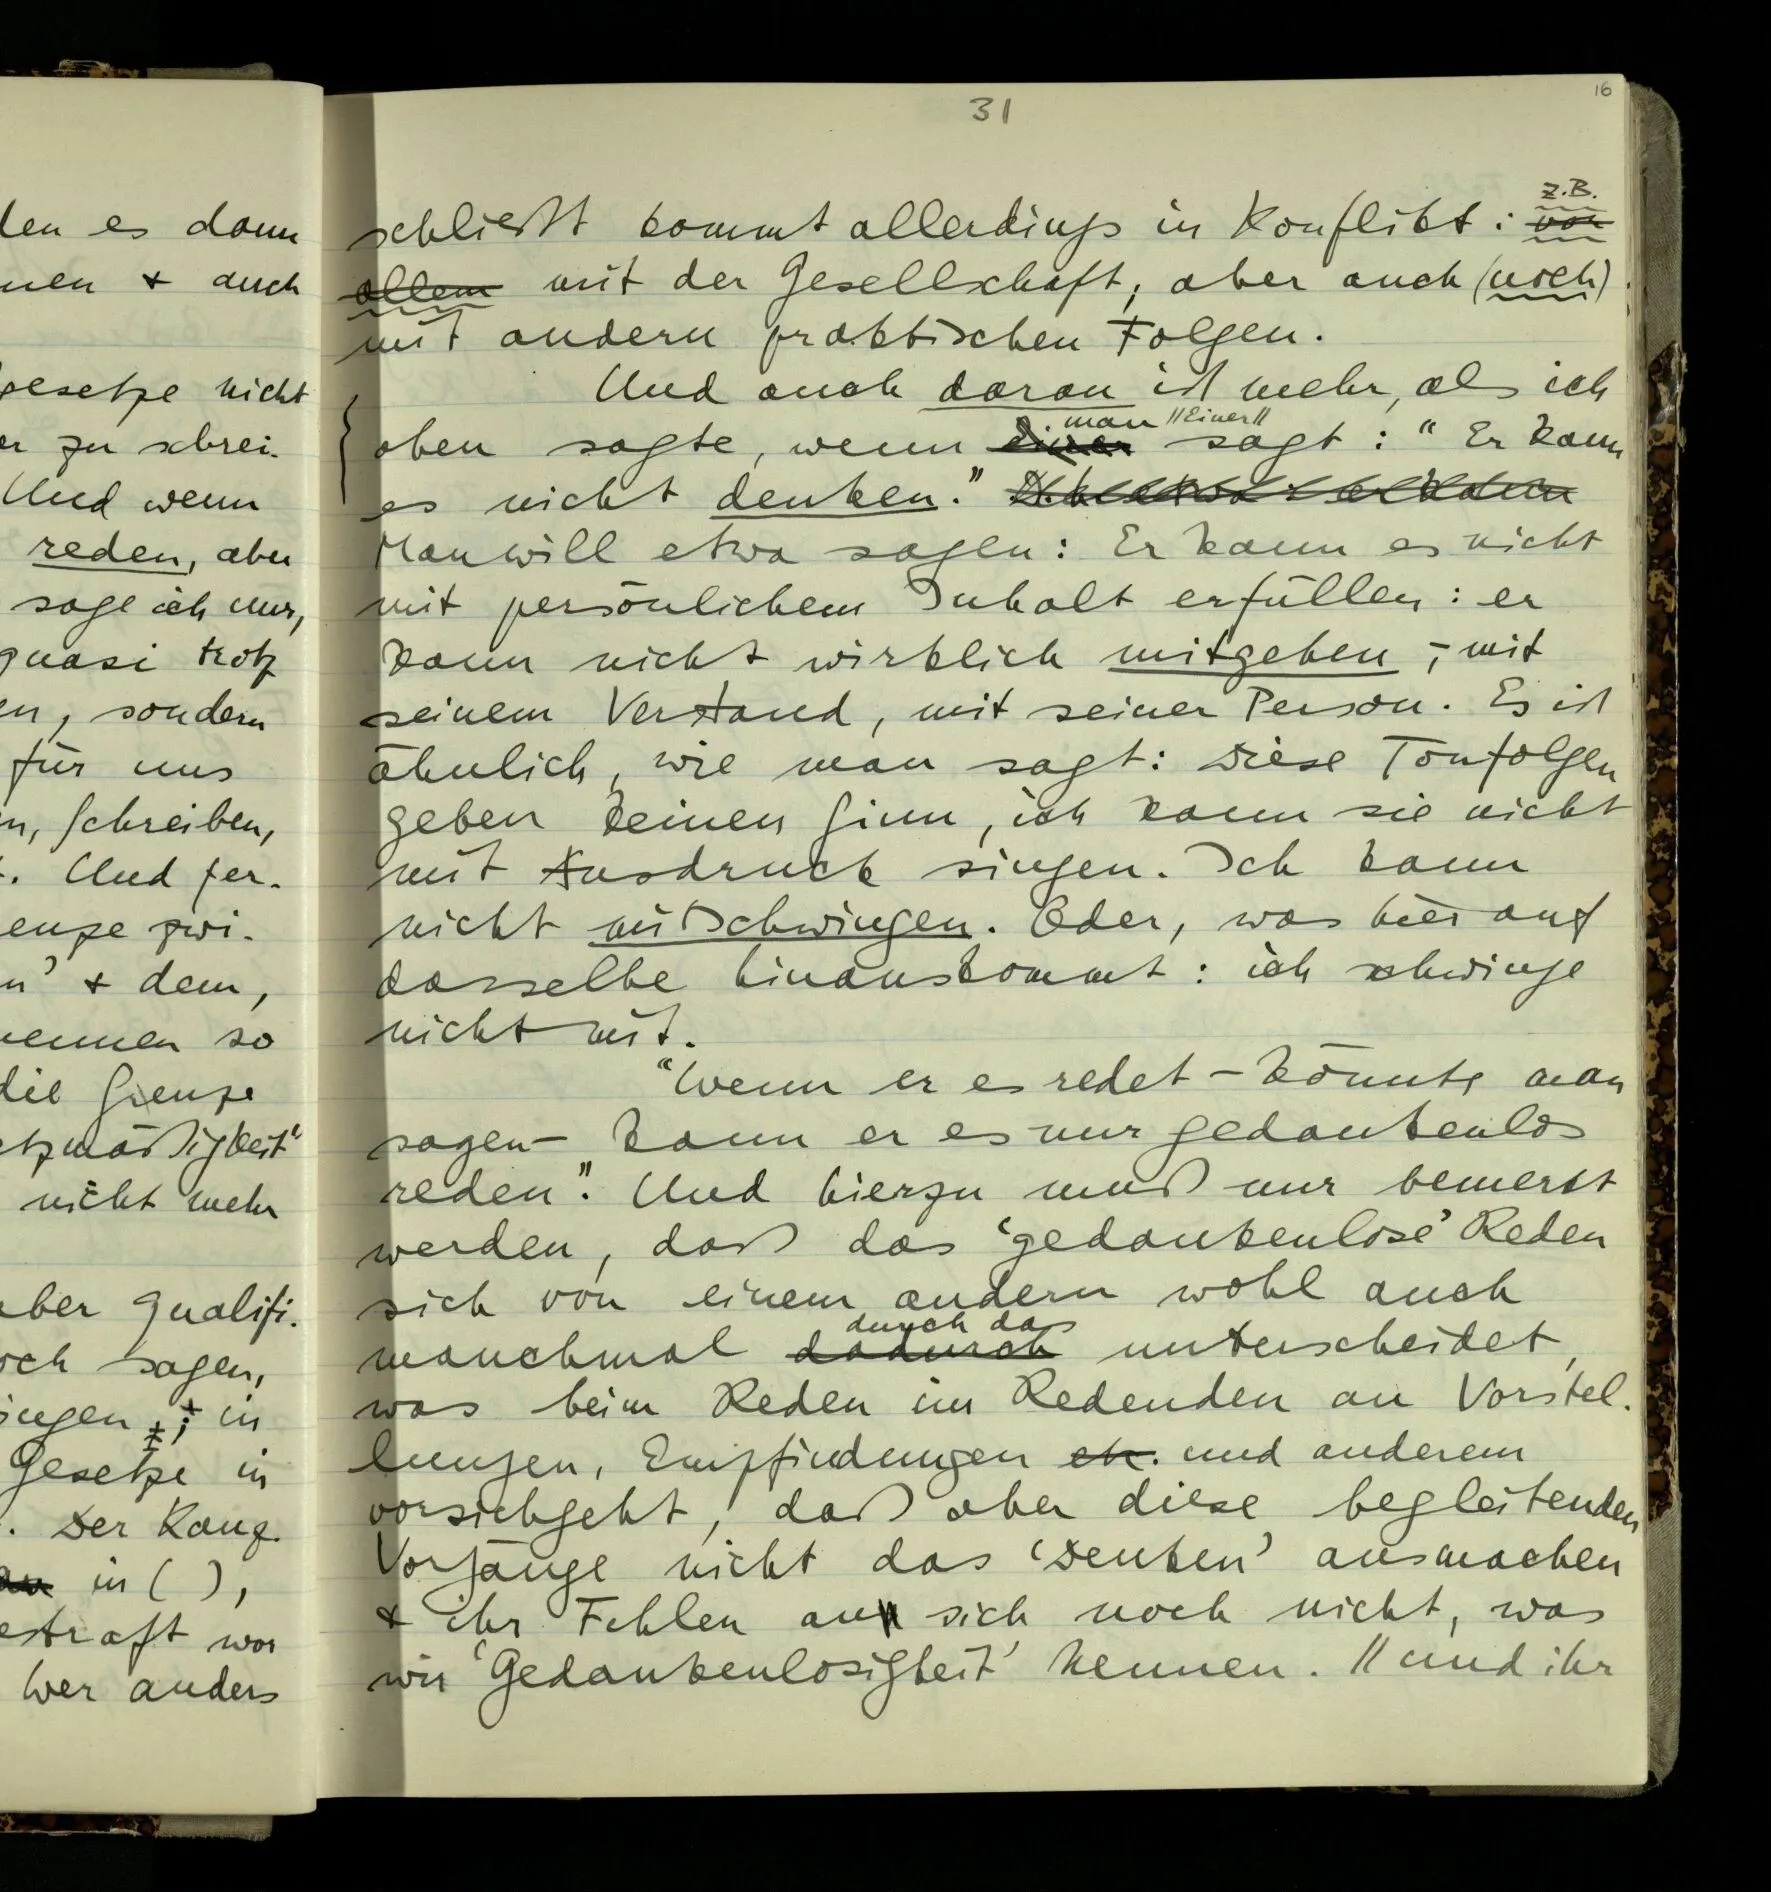 den es dann
nen & auch
gesetze nicht
er zu schrei-
Und wenn
reden, aber
sage ich nur,
quasi trotz
en, sondern
für uns
n, schreiben,
. Und fer-
enze zwi-
n' & dem,
nennen so
die Grenze
etzmäßigkeit"
nicht mehr
aber qualifi-
och sagen,
ingen ; in
Gesetze in
. Der Kanz-
in ( ),
estraft wor
Wer anders
31
16
z.B.
schließt kommt allerdings in Konflikt: vor
allem mit der Gesellschaft, aber auch (noch)
mit andern praktischen Folgen.
Und auch daran ist mehr, als ich
man //Einer//
oben sagte, wenn einer sagt: "Er kann
es nicht denken."
Man will etwa sagen: Er kann es nicht
mit persönlichem Inhalt erfüllen: er
kann nicht wirklich mitgehen, – mit
seinem Verstand, mit seiner Person. Es ist
ähnlich, wie man sagt: Diese Tonfolgen
geben keinen Sinn, ich kann sie nicht
mit Ausdruck singen. Ich kann
nicht mitschwingen. Oder, was hier auf
dasselbe hinauskommt: ich schwinge
nicht mit.
"Wenn er es redet – könnte man
sagen – kann er es nur gedankenlos
reden". Und hierzu muß nur bemerkt
werden, daß das 'gedankenlose' Reden
sich von einem andern wohl auch
durch das
manchmal dadurch unterscheidet,
was beim Reden im Redenden an Vorstel-
lungen, Empfindungen etc. und anderem
vorsichgeht, daß aber diese begleitenden
Vorgänge nicht das 'Denken' ausmachen
& ihr Fehlen an sich noch nicht, was
wir 'Gedankenlosigkeit' nennen. // und ihr